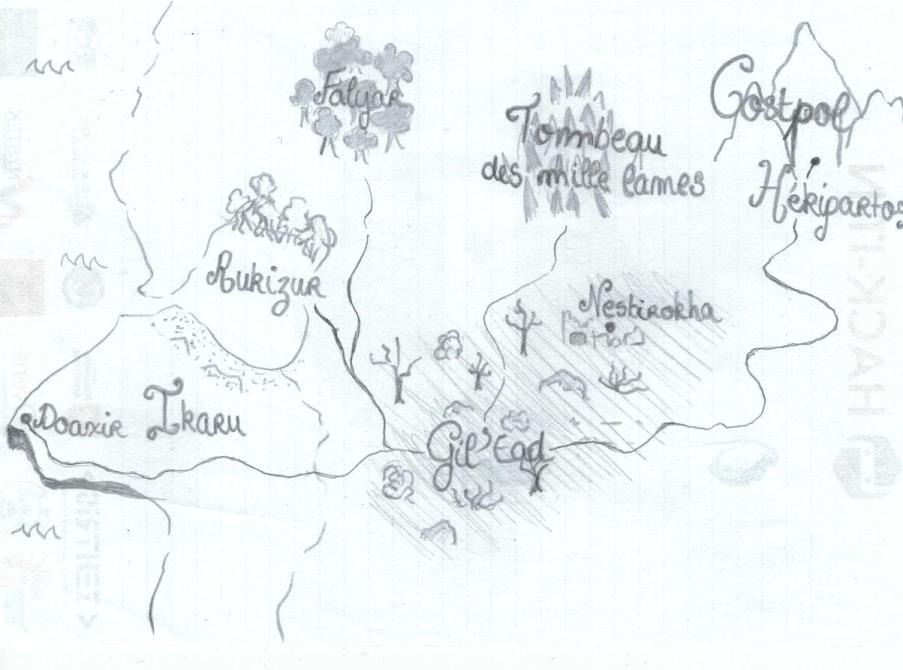 Falyar
Tombeau
des mille lames
Costpol
Hékipartos
Aukizur
Nestirokha
Doaxir
Ikaru
Gil'Ead
HACK-ITN